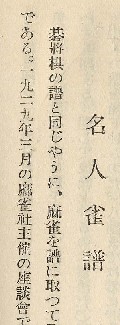 名人雀譜
碁將棋の譜と同じやうに、麻雀を譜に取つて
である。一九二九年三月の麻雀社主催の座談會で